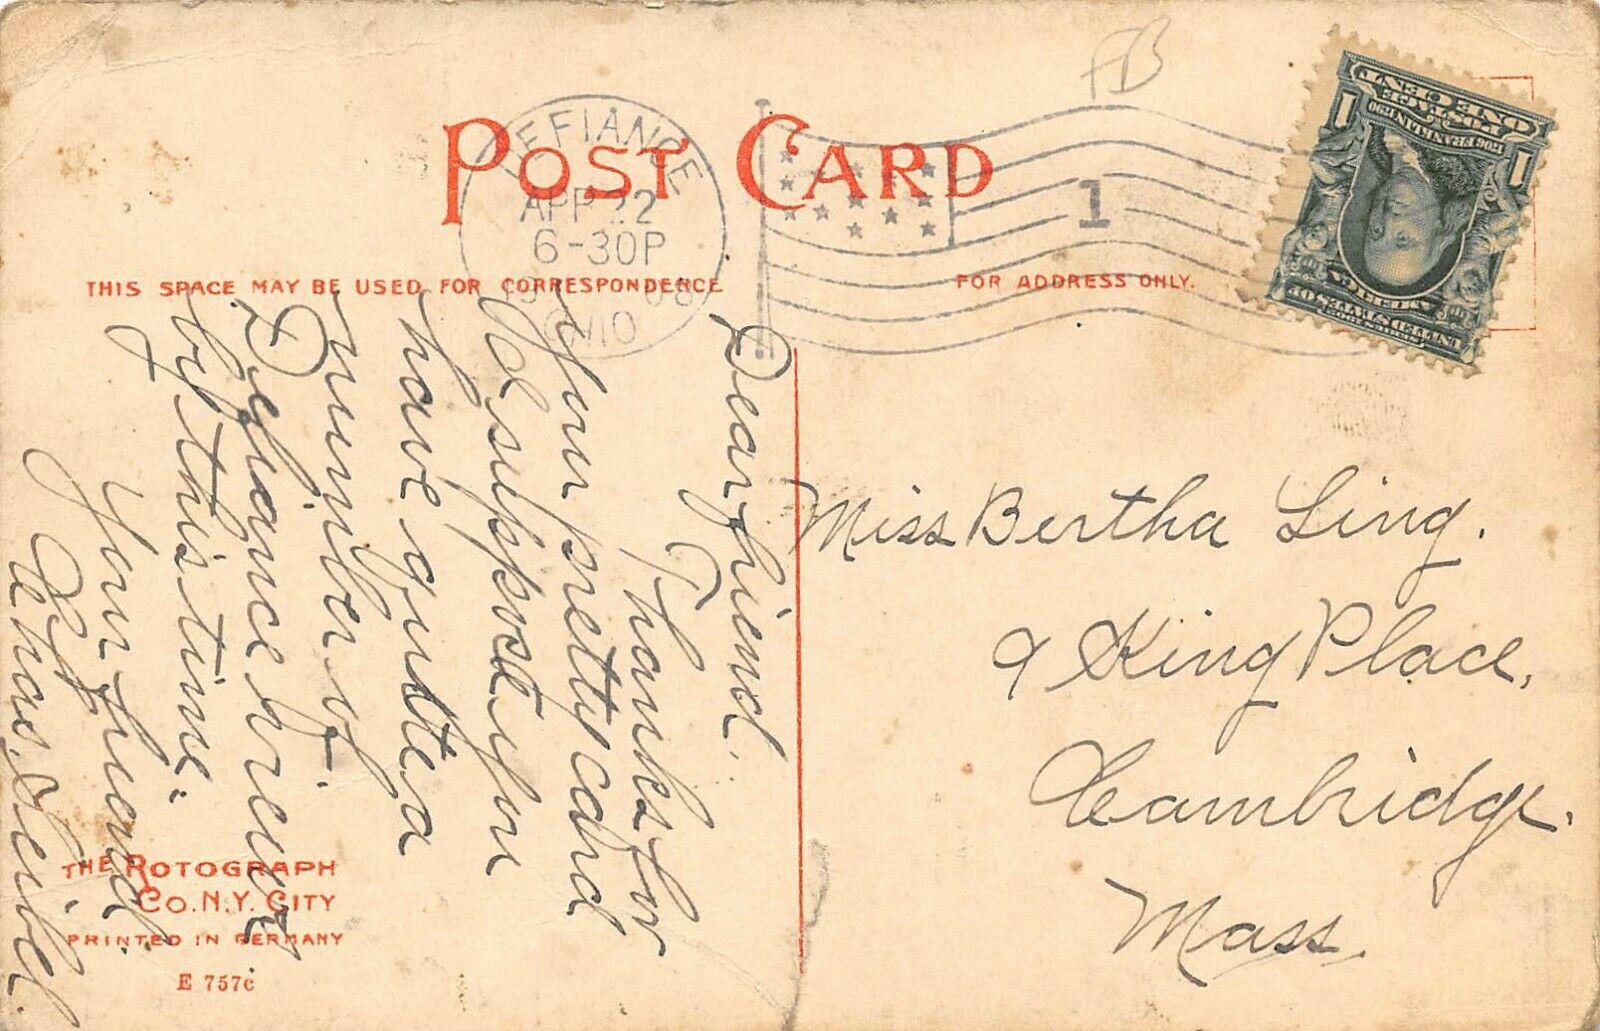 POST CARD
DEFIANCE
APR 22
6-30P
1908
OHIO
1
FB
THIS SPACE MAY BE USED FOR CORRESPONDENCE
FOR ADDRESS ONLY.
Dear friend.
Thanks for
your pretty card
I suppose you
have quite a
number of
Defiance views
by this time.
Your friend
Chas. Seibel.
Miss Bertha Ling.
9 King Place,
Cambridge.
Mass.
THE ROTOGRAPH
CO. N.Y. CITY
PRINTED IN GERMANY
E 757c
SERIES 1902
UNITED STATES OF
AMERICA
1706 FRANKLIN 1790
POSTAGE
1 ONE CENT 1